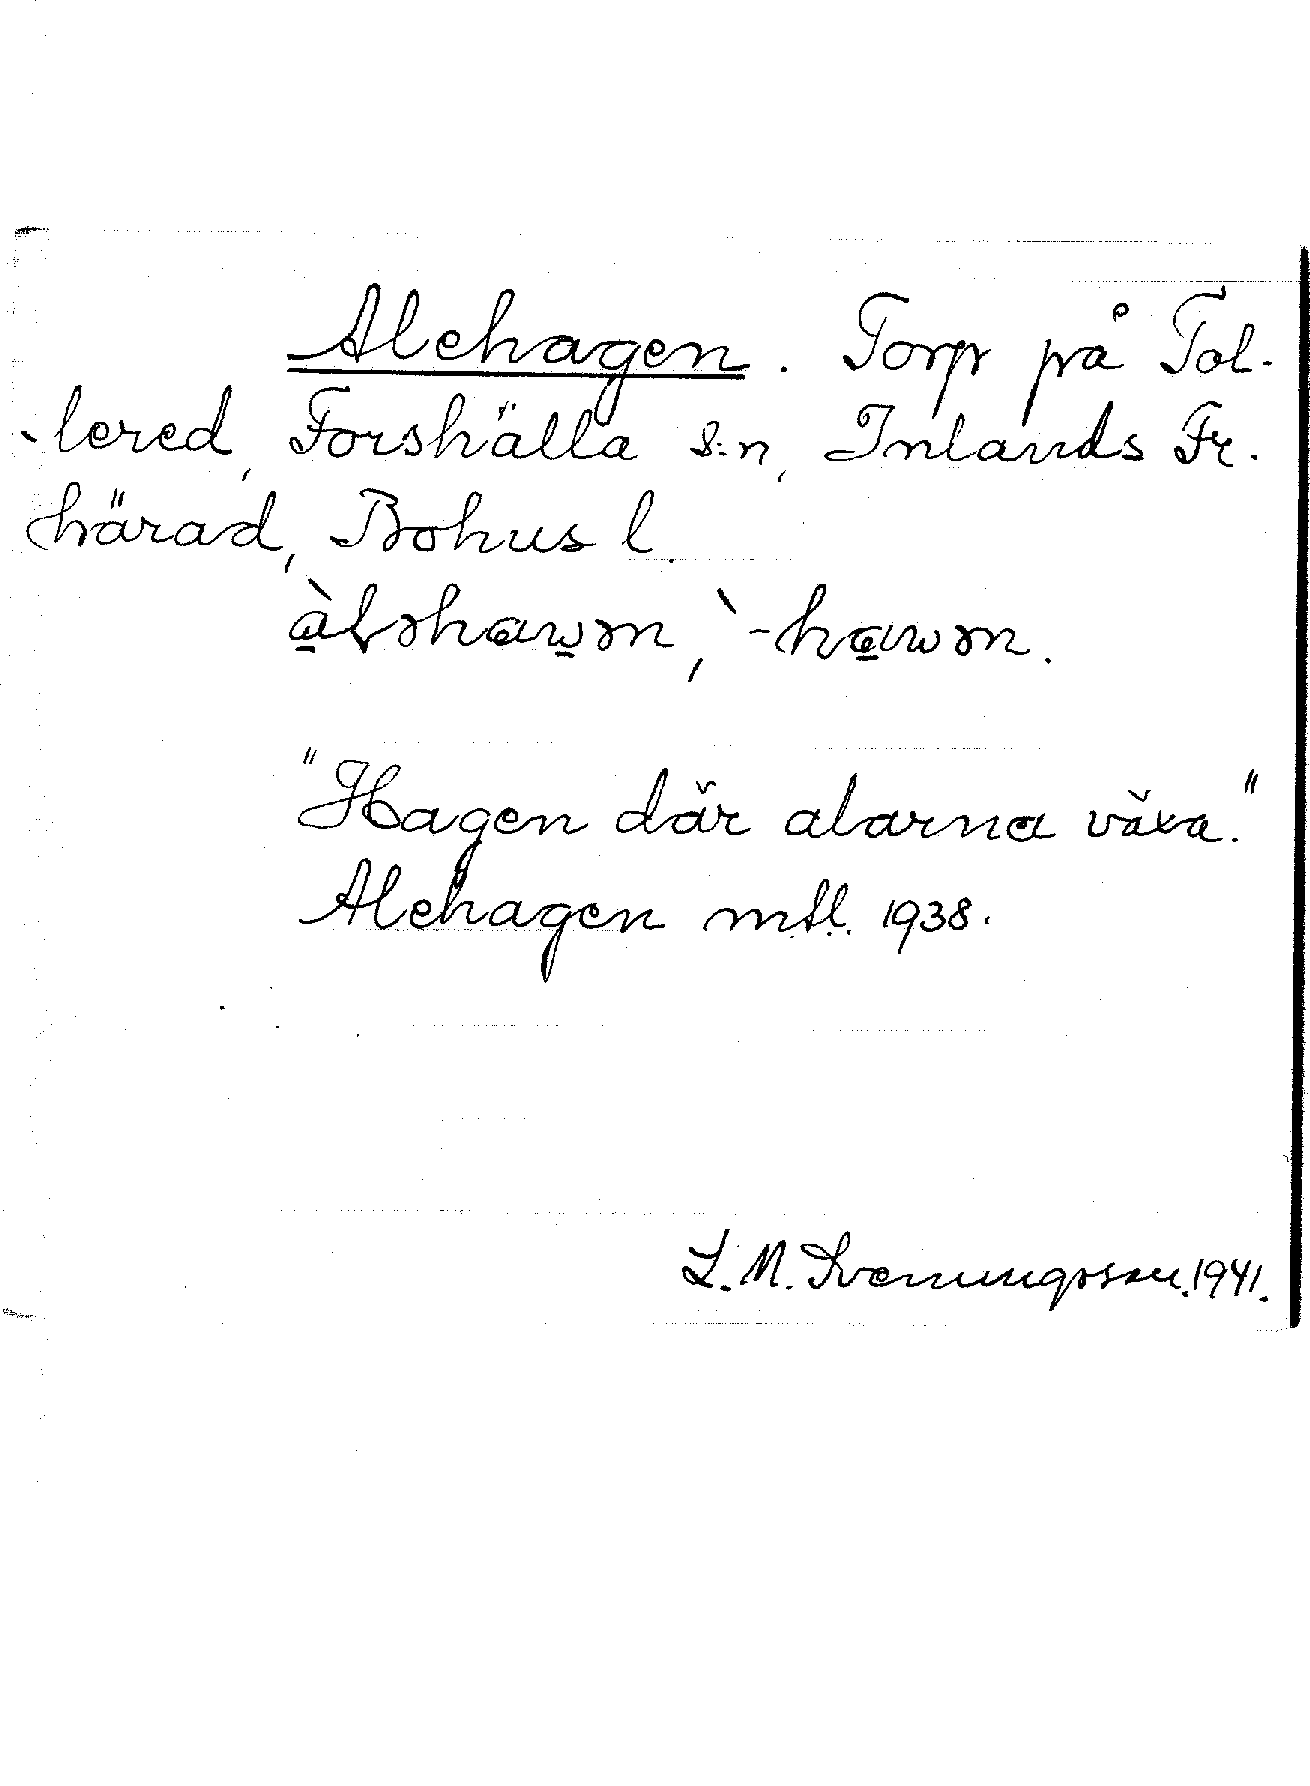 Alehagen. Torp på Tol-
lered, Forshälla s:n, Inlands Fr.
härad, Bohus l.
"Hagen där alarna växa."
Alehagen mtl. 1938.
L. M. Svenungsson. 1941.